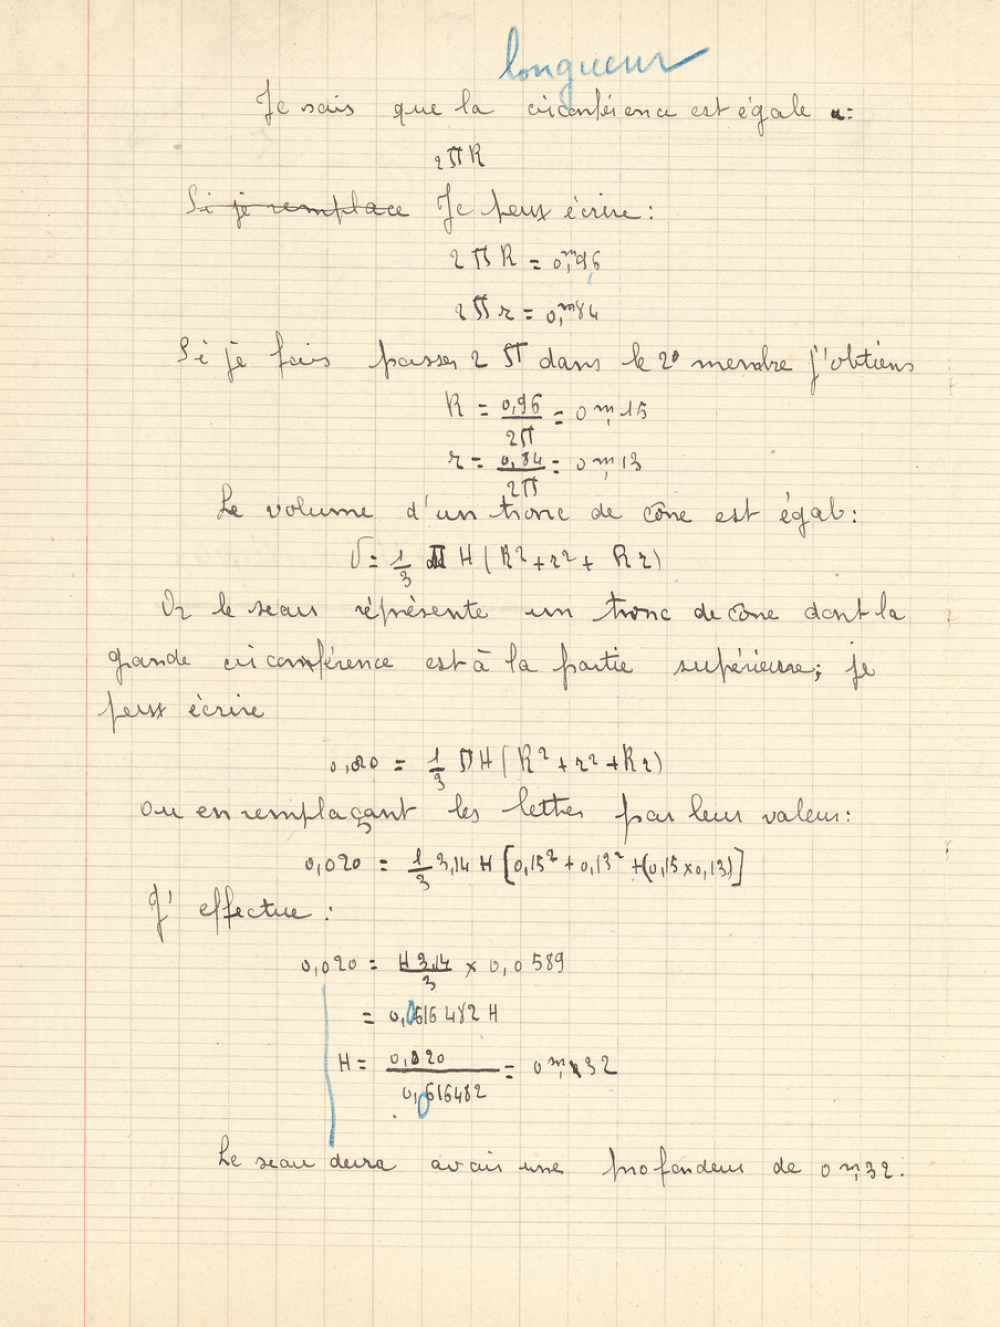 longueur
Je sais que la circonférence est égale a:
2πR
Si je remplace Je peux écrire:
2πR = 0,m96
2πr = 0,m84
Si je fais passer 2π dans le 2° membre j'obtiens
R = 0,96/2π = 0m,15
r = 0,84/2π = 0m,13
Le volume d'un tronc de cône est égal:
V = 1/3 π H (R² + r² + Rr)
Or le seau réprésente un tronc de cône dont la
grande circonférence est à la partie supérieure; je
peux écrire
0,020 = 1/3 πH (R² + r² + Rr)
ou en remplaçant les lettres par leur valeur:
0,020 = 1/3 3,14 H [0,15² + 0,13² + (0,15 x 0,13)]
J'effectue:
0,020 = H 3,14/3 x 0,0589
= 0,0616482 H
H = 0,020/0,0616482 = 0m,32
Le seau devra avoir une profondeur de 0m,32.